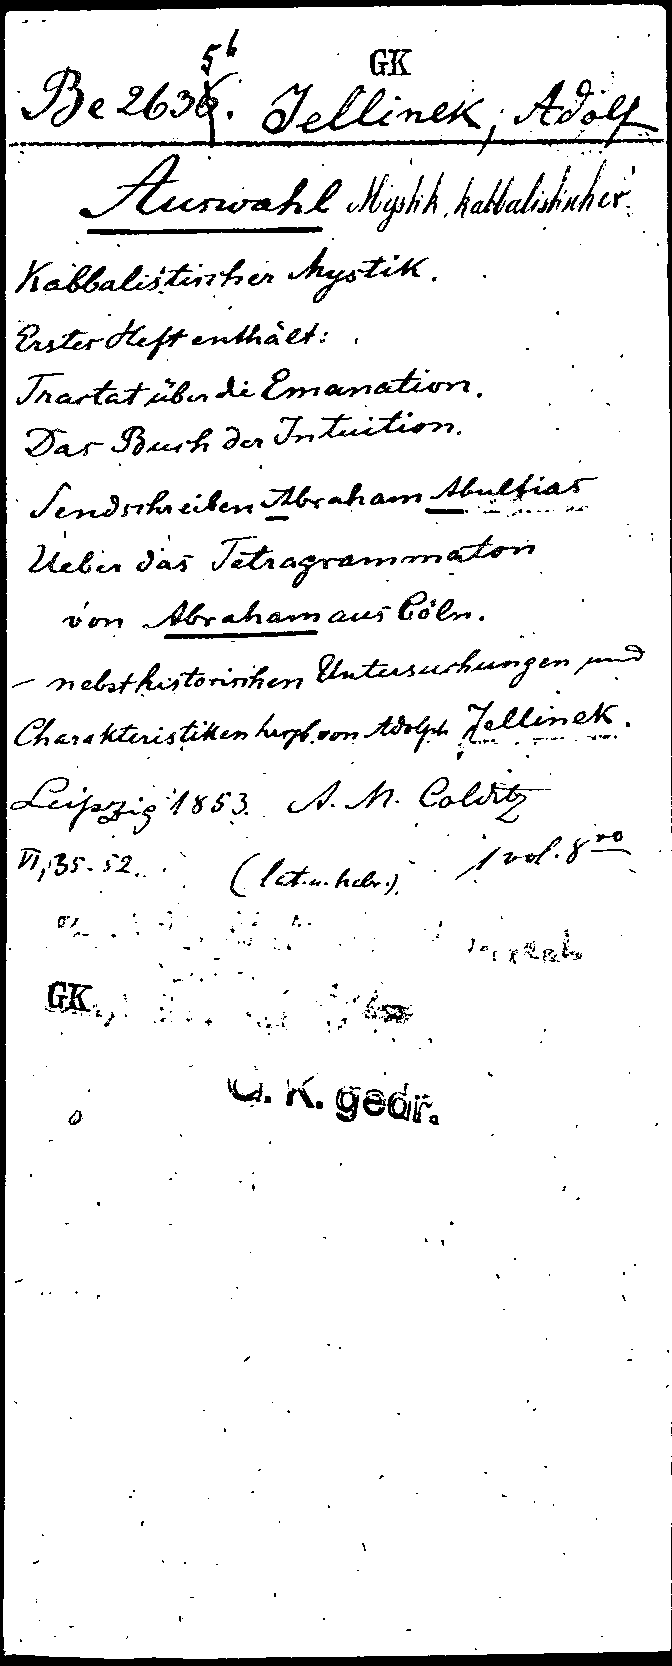 5b GK
Be 2636. Jellinek, Adolf
Auswahl Mystik, kabbalistischer
Kabbalistischer Mystik.
Erstes Heft enthält:
Tractat über die Emanation.
Das Buch der Intuition.
Sendschreiben Abraham Abulfias
Ueber das Tetragrammaton
von Abraham aus Cöln.
– nebst historischen Untersuchungen und
Charakteristiken hrsgb. von Adolph Jellinek.
Leipzig 1853. A. M. Colditz
VI, 35. 52. (lat. u. hebr.) 1 vol. 8vo
GK
G. K. gedr.